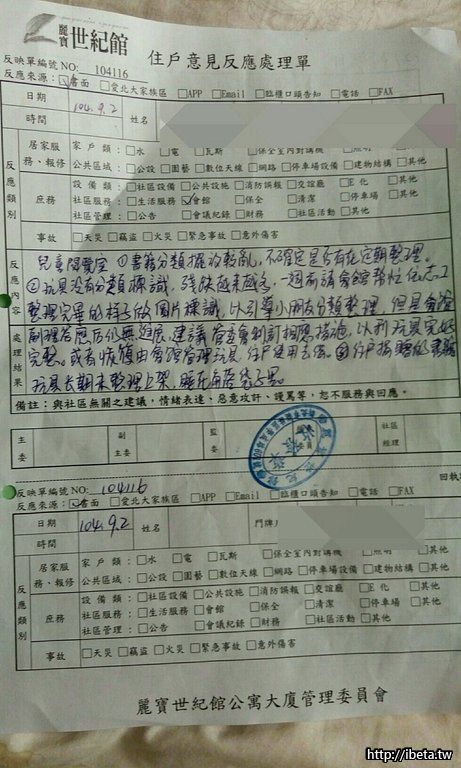 麗寶 世紀館
住戶意見反應處理單
反映單編號 NO: 104116
反應來源：☑書面 □愛北大家族區 □APP □Email □臨櫃口頭告知 □電話 □FAX
日期 104.9.2
時間 姓名
反應類別
居家服務、報修 家戶類：□水 □電 □瓦斯 □保全室內對講機 □照明 □其他
公共區域：□公設 □園藝 □數位天線 □網路 □停車場設備 □建物結構 □其他
庶務 設備類：□社區設備 □公共設施 □消防誤報 □交誼廳 □E化 □其他
社區服務：□生活服務 ☑會館 □保全 □清潔 □停車場 □其他
社區管理：□公告 □會議紀錄 □財務 □社區活動 □其他
事故 □天災 □竊盜 □火災 □緊急事故 □意外傷害
反應內容
兒童閱覽室 ①書籍分類擺放散亂，不確定是否有在定期整理。
②玩具沒有分類標識，殘缺越來越多，一週前請會館幫忙依志工
整理完畢的樣子做圖片標識，以引導小朋友分類整理，但是會館
副理答應后仍無進展，建議管委會制訂相應措施，以利玩具完好
處理結果
完整。或者恢復由會館管理玩具，住戶使用去借。③住戶捐贈的書籍
玩具長期未整理上架，睡在角落袋子里。
備註：與社區無關之建議，情緒表達、惡意攻訐、謾罵等，恕不服務與回應。
主委 副主委 監委 社區經理
反映單編號 NO: 104116
回執
反應來源：☑書面 □愛北大家族區 □APP □Email □臨櫃口頭告知 □電話 □FAX
日期 104.9.2 姓名 門牌
時間
反應類別
居家服務、報修 家戶類：□水 □電 □瓦斯 □保全室內對講機 □照明 □其他
公共區域：□公設 □園藝 □數位天線 □網路 □停車場設備 □建物結構 □其他
庶務 設備類：□社區設備 □公共設施 □消防誤報 □交誼廳 □E化 □其他
社區服務：□生活服務 □會館 □保全 □清潔 □停車場 □其他
社區管理：□公告 □會議紀錄 □財務 □社區活動 □其他
事故 □天災 □竊盜 □火災 □緊急事故 □意外傷害
麗寶世紀館公寓大廈管理委員會
http://ibeta.tw